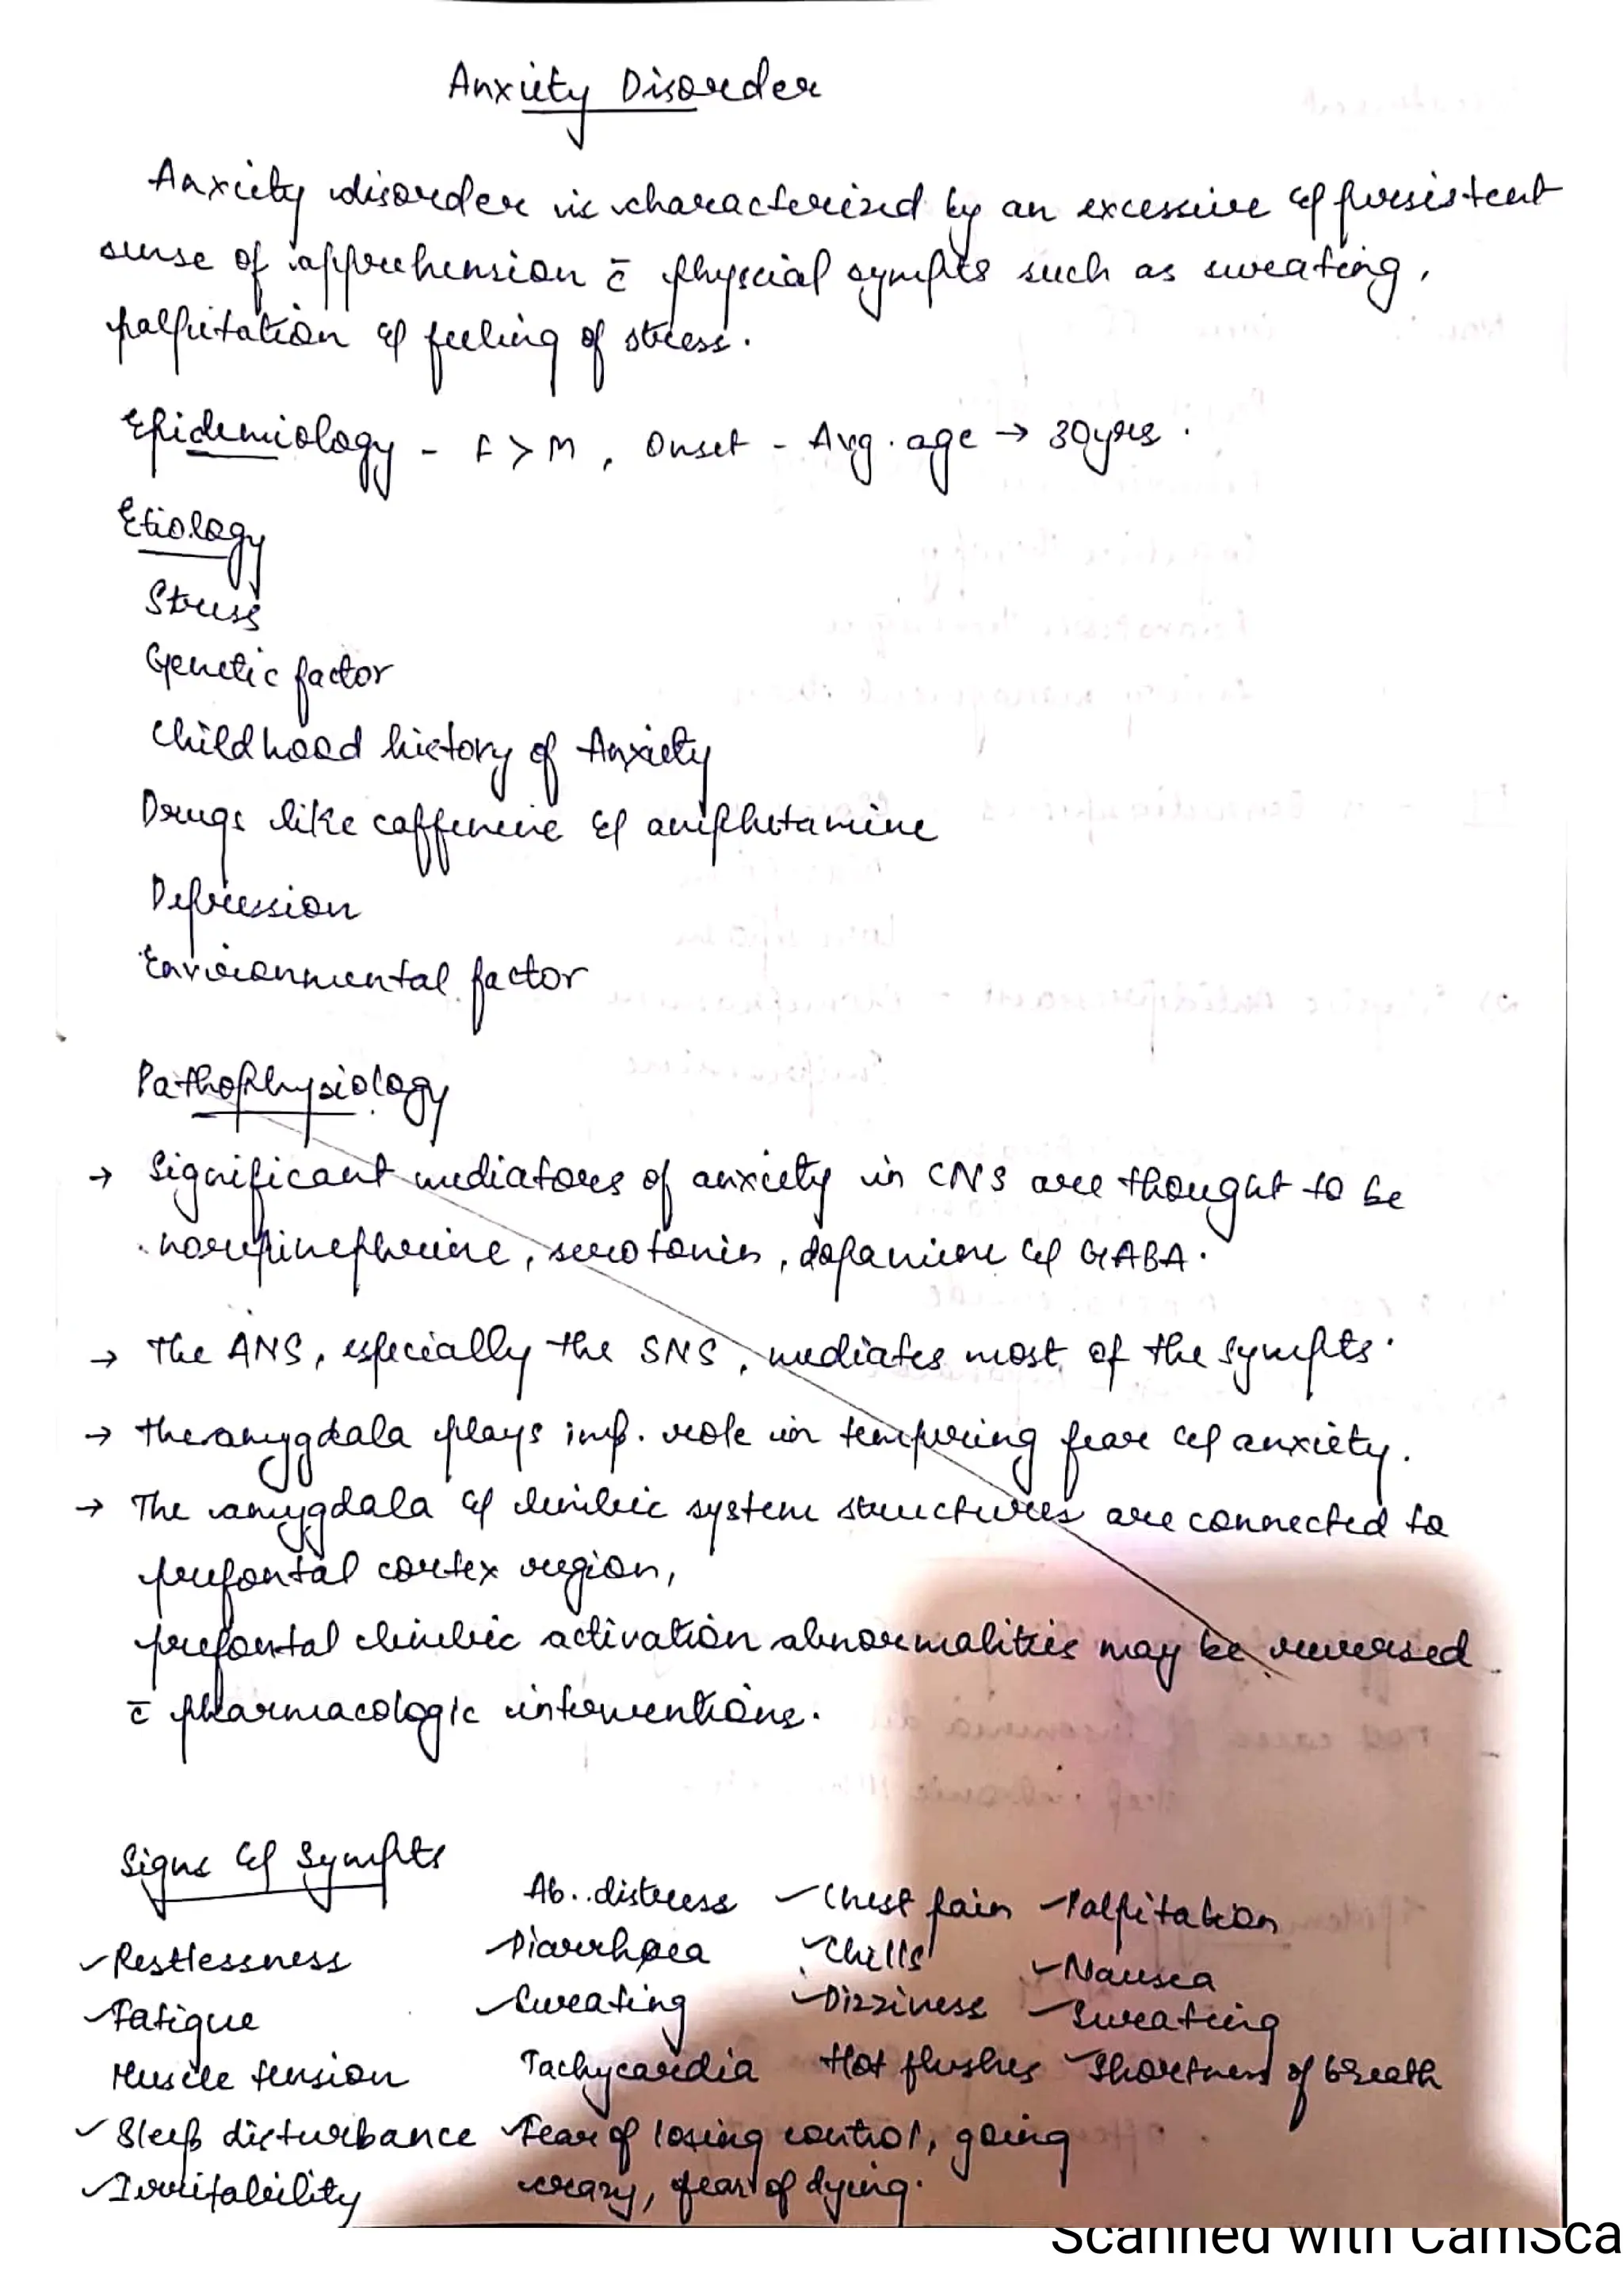 Anxiety Disorder
Anxiety disorder is characterized by an excessive & persistent
sense of apprehension c̄ physcial sympts such as sweating,
palpitation & feeling of stress.
Epidemiology - F > M, Onset - Avg. age → 30yrs.
Etiology
Stress
Genetic factor
Childhood history of Anxiety
Drugs like caffeneine & amphetamine
Depression
Environmental factor
Pathophysiology
→ Significant mediators of anxiety in CNS are thought to be
norepinephrine, serotonin, dopamine & GABA.
→ The ANS, especially the SNS, mediates most of the sympts.
→ The amygdala plays imp. role in tempering fear & anxiety.
→ The amygdala & limbic system structures are connected to
prefontal cortex region,
prefontal limbic activation abnormalities may be reversed
c̄ pharmacologic interventions.
Signs & Sympts
Ab. distress ✓Chest pain ✓Palpitation
✓Restlessness ✓Diarrhoea ✓Chills ✓Nausea
✓Fatigue ✓Sweating ✓Dizziness ✓Sweating
Muscle tension Tachycardia Hot flushes ✓Shortness of breath
✓Sleep disturbance ✓Fear of losing control, going
✓Irritability crazy, fear of dying.
Scanned with CamSca